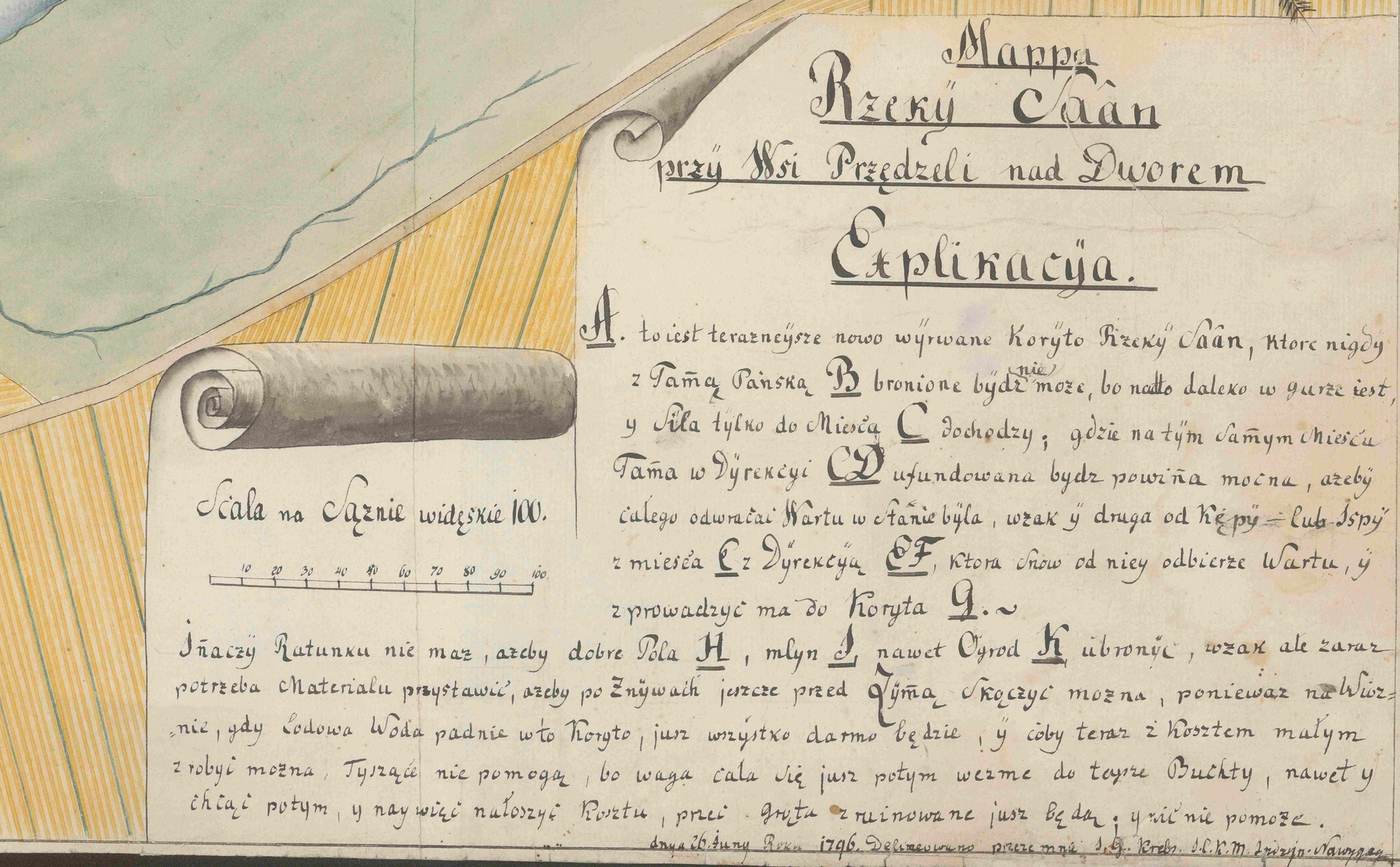 Mappa
Rzekÿ Saân
przÿ Wsi Przędzeli nad Dworem
Explikacÿa.
A. to iest terazneÿsze nowo wÿrwane Korÿto Rzekÿ Saân, ktore nigdy
z Tam̃ą Pańską B bronione bÿdź nie może, bo nadto daleko w gurze iest,
y Siła tylko do Mieścą C dochodzy; gdzie na tÿm Sam̃ym Mieścu
Tam̃a w Dÿrekcyi CD ufundowana bydz powiña mocna, ażeby
całego odwraćać Wartu w Stanie bÿła, wzak ÿ druga od Kępÿ = lub Ispÿ
z mieśća E z Dÿrekcÿą EF, ktora snow od niey odbierze Wartu, ÿ
z prowadzyć ma do Koryta G. ~
Scala na Sąznie widęskie 100.
10 20 30 40 50 60 70 80 90 100
Iñaczÿ Ratunku nie maz, ażeby dobre Pola H, młyn I, nawet Ogrod K ubronÿć, wzak ale zaraz
potrzeba Materialu przystawić, ażeby po Żnÿwach jeszcze przed Zÿm̃ą Skączyć mozna, poniewaz na Wioz=
=nie, gdy Lodowa Woda padnie w to Koryto, jusz wszÿstko darmo będzie, ÿ coby teraz z Kosztem małym
zrobyć mozna, Tysząće nie pomogą, bo waga cala się jusz potym wezme do teysze Buchty, nawet y
chcąć potym, y naywięć nałoszyć Kosztu, przeć Gręta zruinowane jusz będą; y nić nie pomoże.
dnya 26. Juny Roku 1796. Delineowano przeze mnie I. G. Krebs. I. C. K. M.